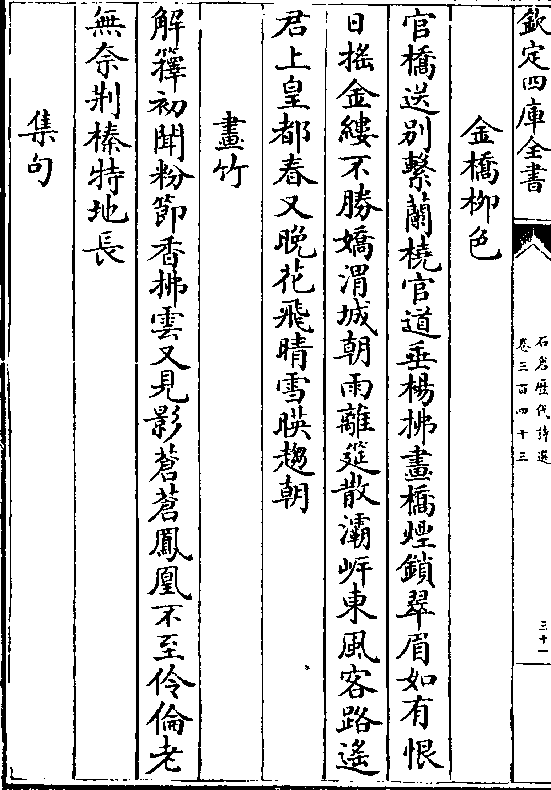 欽定四庫全書
石倉歷代詩選
卷三百四十三
三十一
金橋柳色
官橋送别繫蘭橈官道垂楊拂畫橋煙鎖翠眉如有恨
日摇金縷不勝嬌渭城朝雨離筵散灞岍東風客路遙
君上皇都春又晚花飛晴雪暎趨朝
畫竹
解籜初聞粉節香拂雲又見影蒼蒼鳳凰不至伶倫老
無奈荆榛特地長
集句